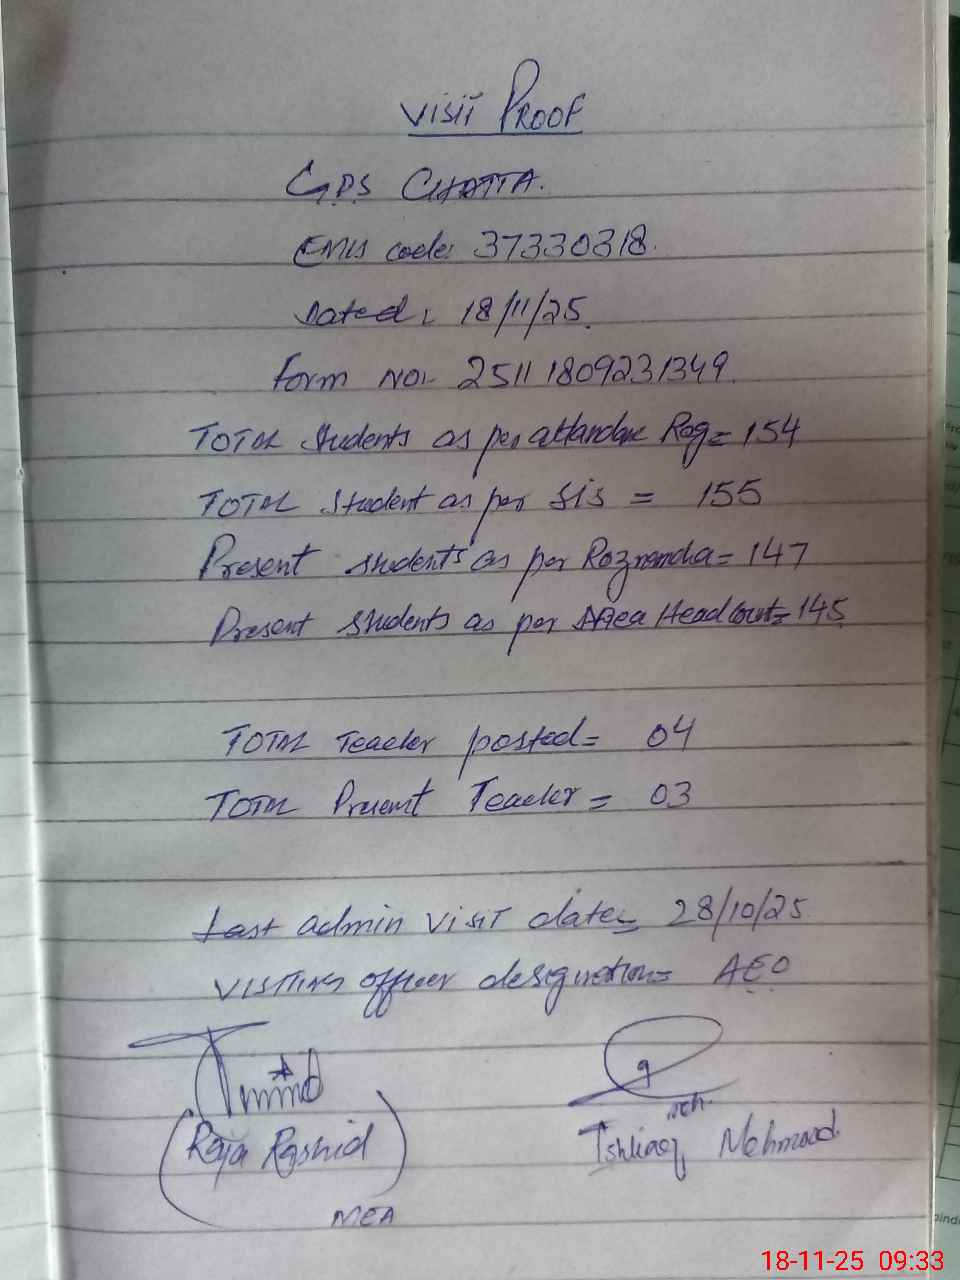 VISIT PROOF
G.P.S CHATTA.
EMIS code: 37330318.
Dated: 18/11/25.
Form No:- 25111809231349.
TOTAL students as per attandance Reg = 154
TOTAL student as per SIS = 155
Present students as per Roznamcha = 147
Present students as per MEA Head Count = 145
TOTAL Teacher posted = 04
TOTAL Present Teacher = 03
Last admin VISIT date = 28/10/25.
VISTING officer designation = AEO
(Raja Rashid)
Ishtiaq Mehmood
MEA
18-11-25 09:33